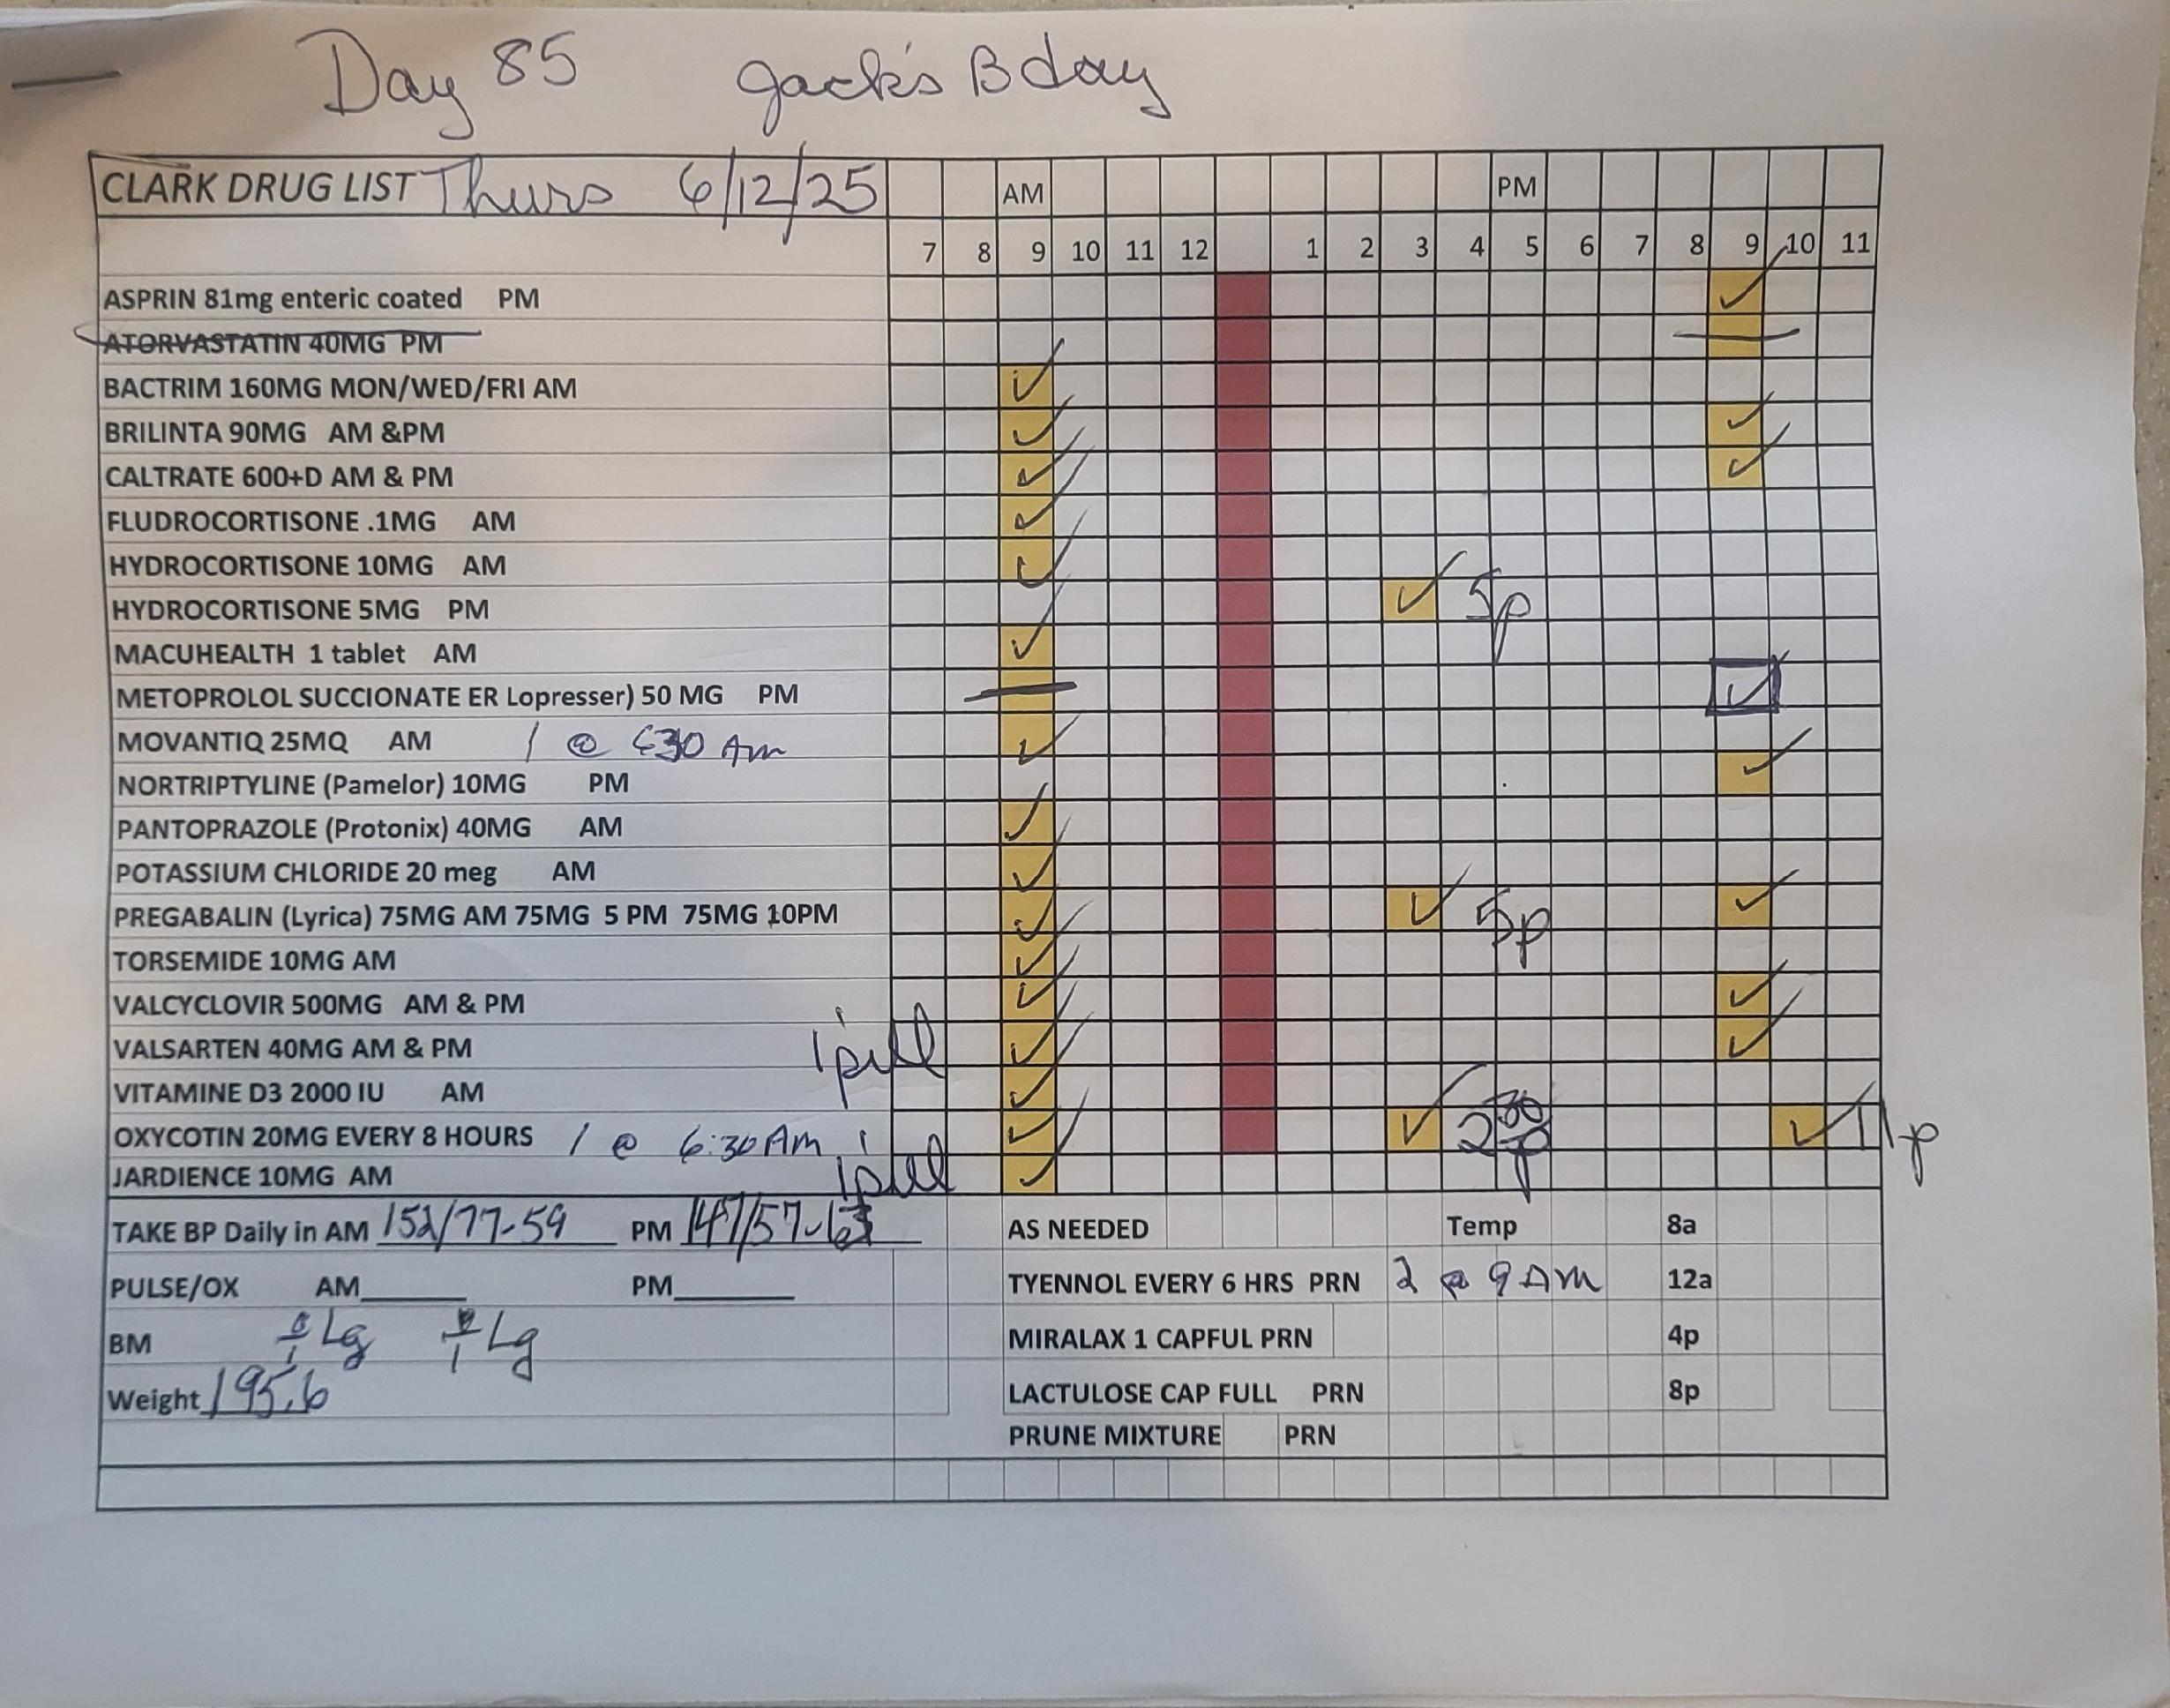 Day 85 Jack's Bday
CLARK DRUG LIST Thurs 6/12/25 AM PM
7 8 9 10 11 12 1 2 3 4 5 6 7 8 9 10 11
ASPRIN 81mg enteric coated PM ✓
ATORVASTATIN 40MG PM
BACTRIM 160MG MON/WED/FRI AM ✓
BRILINTA 90MG AM &PM ✓ ✓
CALTRATE 600+D AM & PM ✓ ✓
FLUDROCORTISONE .1MG AM ✓
HYDROCORTISONE 10MG AM ✓
HYDROCORTISONE 5MG PM ✓ 5p
MACUHEALTH 1 tablet AM ✓
METOPROLOL SUCCIONATE ER Lopresser) 50 MG PM ✓
MOVANTIQ 25MQ AM 1 @ 630 Am ✓
NORTRIPTYLINE (Pamelor) 10MG PM ✓
PANTOPRAZOLE (Protonix) 40MG AM ✓
POTASSIUM CHLORIDE 20 meg AM ✓
PREGABALIN (Lyrica) 75MG AM 75MG 5 PM 75MG 10PM ✓ ✓ 5p ✓
TORSEMIDE 10MG AM ✓
VALCYCLOVIR 500MG AM & PM ✓ ✓
VALSARTEN 40MG AM & PM 1 pill ✓ ✓
VITAMINE D3 2000 IU AM ✓
OXYCOTIN 20MG EVERY 8 HOURS 1 @ 6:30 Am ✓ ✓ 2:30 p ✓ 11p
JARDIENCE 10MG AM 1 pill ✓
TAKE BP Daily in AM 152/77-59 PM 147/57-63 AS NEEDED Temp 8a
PULSE/OX AM PM TYENNOL EVERY 6 HRS PRN 2 @ 9 AM 12a
BM Lg Lg MIRALAX 1 CAPFUL PRN 4p
Weight 195.6 LACTULOSE CAP FULL PRN 8p
PRUNE MIXTURE PRN